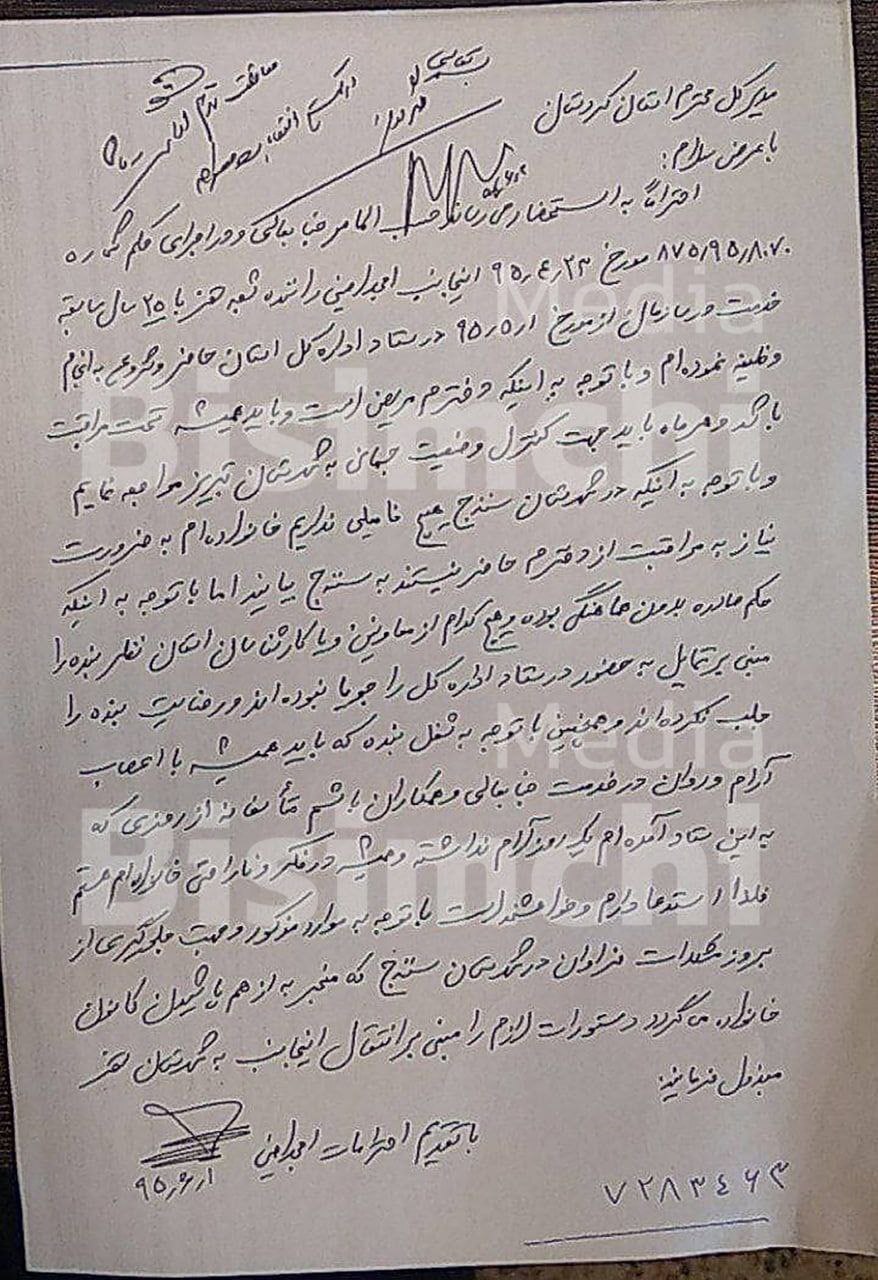 بسمه تعالی
مدیر کل محترم استان کردستان
با عرض سلام:
احتراماً به استحضار می رساند حسب الامر جنابعالی و در اجرای حکم شماره
۸۷۵/۹۵/۸۰۷۰ مورخ ۹۵/۴/۲۳ اینجانب امجد امینی راننده شعبه سقز با ۲۵ سال سابقه
خدمت در سازمان از مورخ ۹۵/۵/۱ در ستاد اداره کل استان حاضر و شروع به انجام
وظیفه نموده ام و با توجه به اینکه دخترم مریض است و باید همیشه تحت مراقبت
باشد و هر ماه باید جهت کنترل وضعیت جسمانی به شهرستان تبریز مراجعه نمایم
و با توجه به اینکه در شهرستان سنندج هیچ فامیلی نداریم خانواده ام به ضرورت
نیاز به مراقبت از دخترم حاضر نیستند به سنندج بیایند اما با توجه به اینکه
حکم صادره بدون هماهنگی بوده و هیچ کدام از معاونین و یا کارشناسان استان نظر بنده را
مبنی بر تمایل به حضور در ستاد اداره کل را جویا نبوده اند و رضایت بنده را
جلب نکرده اند و همچنین با توجه به شغل بنده که باید همیشه با اعصاب
آرام و روان در خدمت جنابعالی و همکاران باشم متأسفانه از روزی که
به این ستاد آمده ام یک روز آرام نداشته و همیشه در فکر و ناراحتی خانواده ام هستم
فلذا استدعا دارم و خواهشمند است با توجه به موارد مذکور و جهت جلوگیری از
بروز مشکلات فراوان در شهرستان سنندج که منجر به از هم پاشیدن کانون
خانواده می گردد دستورات لازم را مبنی بر انتقال اینجانب به شهرستان سقز
مبذول فرمائید.
با تقدیم احترامات امجد امینی
۹۵/۶/۱
۷۲۸۳۴۶۳
Media
Bisimchi
Media
Bisimchi